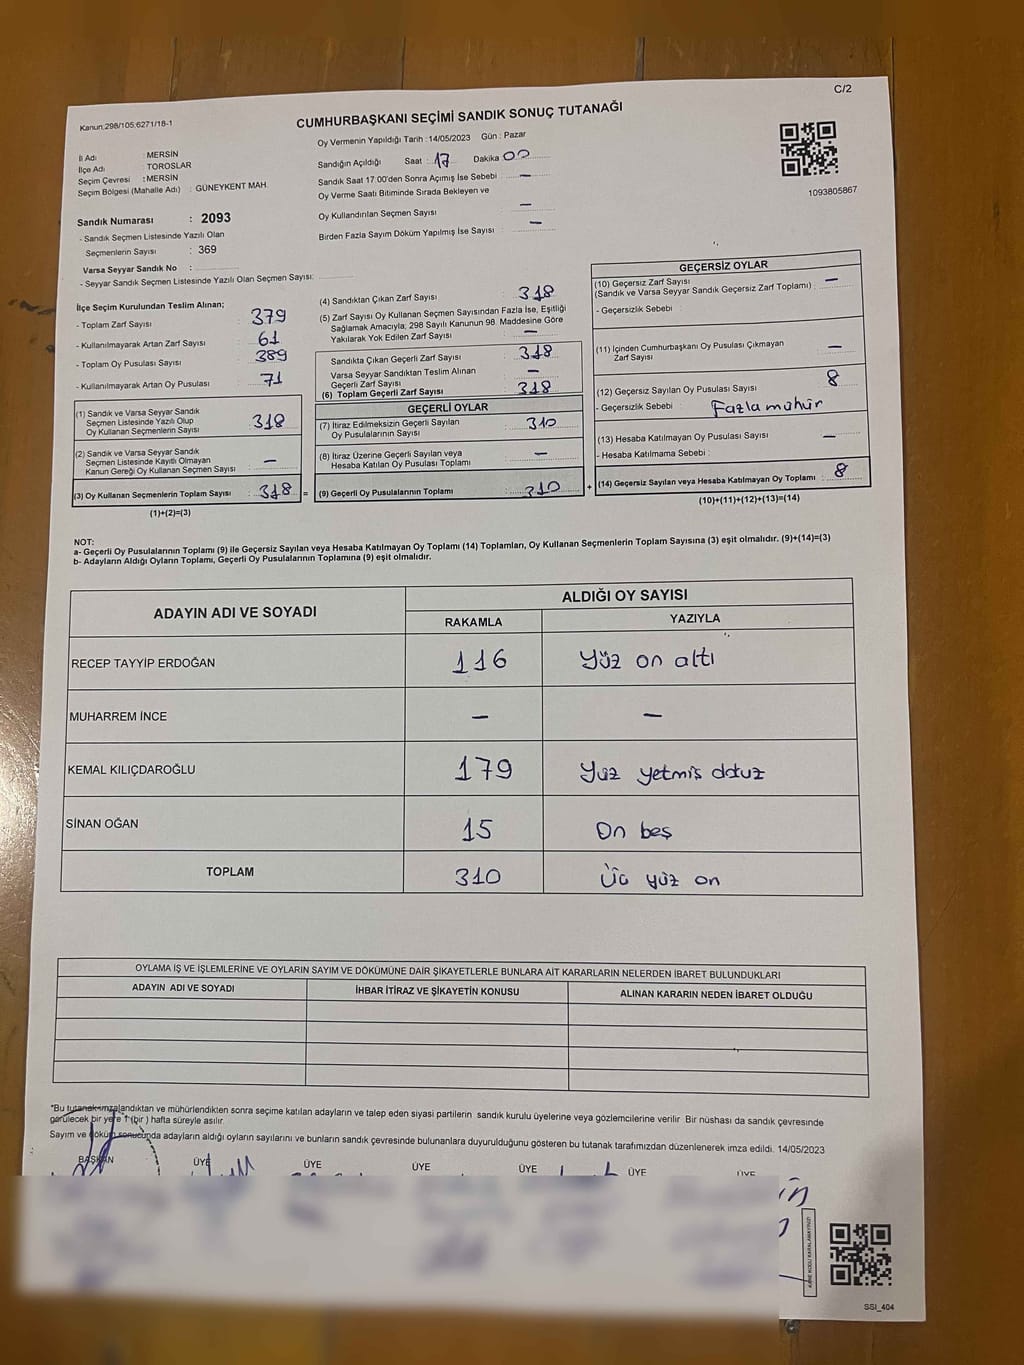 C/2
Kanun:298/105;6271/18-1
CUMHURBAŞKANI SEÇİMİ SANDIK SONUÇ TUTANAĞI
Oy Vermenin Yapıldığı Tarih :14/05/2023 Gün : Pazar
İl Adı : MERSİN
İlçe Adı : TOROSLAR
Seçim Çevresi : MERSİN
Seçim Bölgesi (Mahalle Adı) : GÜNEYKENT MAH.
Sandık Numarası : 2093
- Sandık Seçmen Listesinde Yazılı Olan
Seçmenlerin Sayısı : 369
Varsa Seyyar Sandık No :
- Seyyar Sandık Seçmen Listesinde Yazılı Olan Seçmen Sayısı:
Sandığın Açıldığı Saat : 17 Dakika 00
Sandık Saat 17.00'den Sonra Açımış İse Sebebi : —
Oy Verme Saati Bitiminde Sırada Bekleyen ve
Oy Kullandırılan Seçmen Sayısı : —
Birden Fazla Sayım Döküm Yapılmış İse Sayısı : —
1093805867
İlçe Seçim Kurulundan Teslim Alınan;
- Toplam Zarf Sayısı : 379
- Kullanılmayarak Artan Zarf Sayısı : 61
- Toplam Oy Pusulası Sayısı : 389
- Kullanılmayarak Artan Oy Pusulası : 71
(1) Sandık ve Varsa Seyyar Sandık
Seçmen Listesinde Yazılı Olup
Oy Kullanan Seçmenlerin Sayısı : 318
(2) Sandık ve Varsa Seyyar Sandık
Seçmen Listesinde Kayıtlı Olmayan
Kanun Gereği Oy Kullanan Seçmen Sayısı : —
(3) Oy Kullanan Seçmenlerin Toplam Sayısı : 318 =
(1)+(2)=(3)
(4) Sandıktan Çıkan Zarf Sayısı : 318
(5) Zarf Sayısı Oy Kullanan Seçmen Sayısından Fazla İse, Eşitliği
Sağlamak Amacıyla; 298 Sayılı Kanunun 98. Maddesine Göre
Yakılarak Yok Edilen Zarf Sayısı : —
Sandıkta Çıkan Geçerli Zarf Sayısı : 318
Varsa Seyyar Sandıktan Teslim Alınan
Geçerli Zarf Sayısı : —
(6) Toplam Geçerli Zarf Sayısı : 318
GEÇERLİ OYLAR
(7) İtiraz Edilmeksizin Geçerli Sayılan
Oy Pusulalarının Sayısı : 310
(8) İtiraz Üzerine Geçerli Sayılan veya
Hesaba Katılan Oy Pusulası Toplamı : —
(9) Geçerli Oy Pusulalarının Toplamı : 310 +
GEÇERSİZ OYLAR
(10) Geçersiz Zarf Sayısı
(Sandık ve Varsa Seyyar Sandık Geçersiz Zarf Toplamı) : —
- Geçersizlik Sebebi :
(11) İçinden Cumhurbaşkanı Oy Pusulası Çıkmayan
Zarf Sayısı : —
(12) Geçersiz Sayılan Oy Pusulası Sayısı : 8
- Geçersizlik Sebebi : Fazla mühür
(13) Hesaba Katılmayan Oy Pusulası Sayısı : —
- Hesaba Katılmama Sebebi :
(14) Geçersiz Sayılan veya Hesaba Katılmayan Oy Toplamı : 8
(10)+(11)+(12)+(13)=(14)
NOT:
a- Geçerli Oy Pusulalarının Toplamı (9) ile Geçersiz Sayılan veya Hesaba Katılmayan Oy Toplamı (14) Toplamları, Oy Kullanan Seçmenlerin Toplam Sayısına (3) eşit olmalıdır. (9)+(14)=(3)
b- Adayların Aldığı Oyların Toplamı, Geçerli Oy Pusulalarının Toplamına (9) eşit olmalıdır.
ADAYIN ADI VE SOYADI ALDIĞI OY SAYISI
RAKAMLA YAZIYLA
RECEP TAYYİP ERDOĞAN 116 Yüz on altı
MUHARREM İNCE — —
KEMAL KILIÇDAROĞLU 179 Yüz yetmiş dokuz
SİNAN OĞAN 15 On beş
TOPLAM 310 Üç yüz on
OYLAMA İŞ VE İŞLEMLERİNE VE OYLARIN SAYIM VE DÖKÜMÜNE DAİR ŞİKAYETLERLE BUNLARA AİT KARARLARIN NELERDEN İBARET BULUNDUKLARI
ADAYIN ADI VE SOYADI İHBAR İTİRAZ VE ŞİKAYETİN KONUSU ALINAN KARARIN NEDEN İBARET OLDUĞU
*Bu tutanak imzalandıktan ve mühürlendikten sonra seçime katılan adayların ve talep eden siyasi partilerin sandık kurulu üyelerine veya gözlemcilerine verilir. Bir nüshası da sandık çevresinde
görülecek bir yere 1 (bir) hafta süreyle asılır.
Sayım ve döküm sonucunda adayların aldığı oyların sayılarını ve bunların sandık çevresinde bulunanlara duyurulduğunu gösteren bu tutanak tarafımızdan düzenlenerek imza edildi. 14/05/2023
BAŞKAN ÜYE ÜYE ÜYE ÜYE ÜYE ÜYE
SSI_404